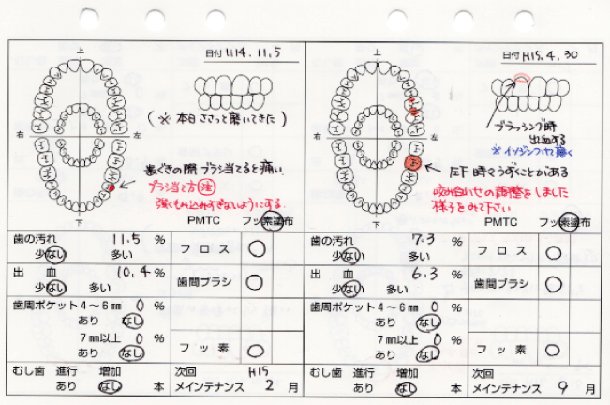 上
日付 H14.11.5
(※ 本日ささっと磨いてきた)
右 左
歯ぐきの間ブラシ当てると痛い
ブラシ当て方注
強くもの込みすぎないようにする
下
PMTC フッ素塗布
歯の汚れ 11.5 %
少ない 多い
フロス ○
出血 10.4 %
少ない 多い
歯間ブラシ ○
歯周ポケット4~6mm 0 %
あり なし
7mm以上 0 %
あり なし
フッ素 ○
むし歯 進行 増加
あり なし 本
次回 H15
メインテナンス 2 月
上
日付 H15.4.30
ブラッシング時
出血する
右 左
左下 時々うずくことがある
咬み合わせの調整をしました
様子をみて下さい
下
PMTC フッ素塗布
歯の汚れ 7.3 %
少ない 多い
フロス ○
出血 6.3 %
少ない 多い
歯間ブラシ ○
歯周ポケット4~6mm 0 %
あり なし
7mm以上 0 %
あり なし
フッ素 ○
むし歯 進行 増加
あり なし 本
次回
メインテナンス 9 月